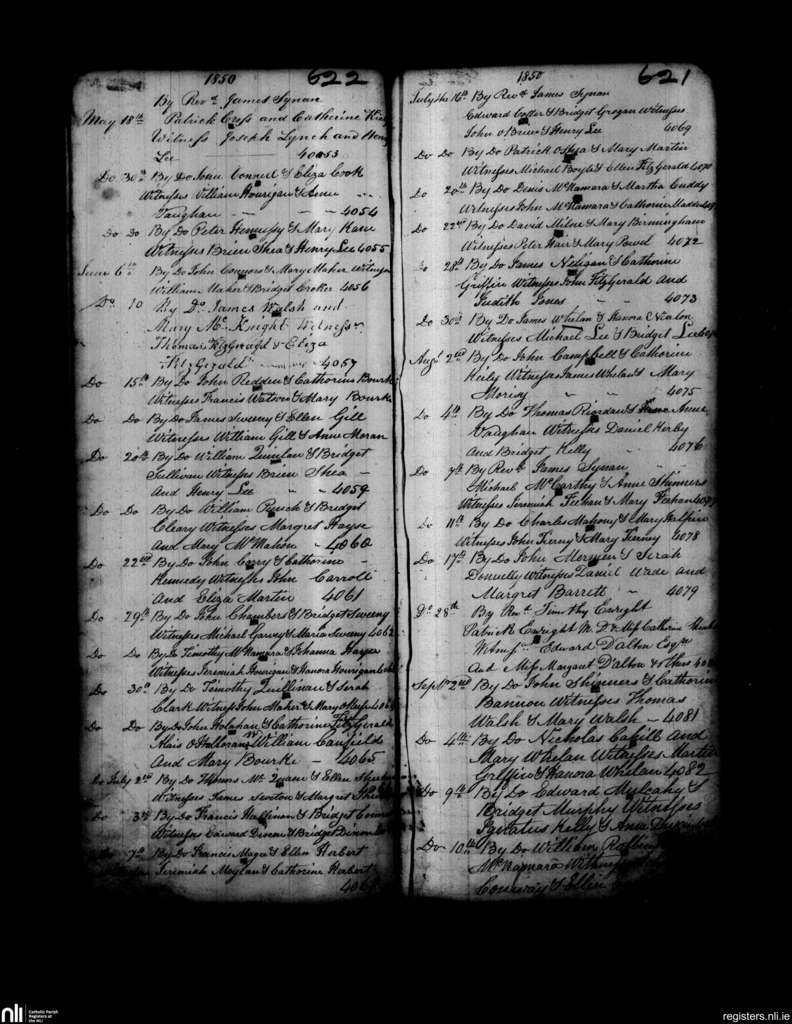 1850 622
By Revd James Synan
May 18th Patrick Cress and Catherine
Witness Joseph Lynch and
Lee 4053
Do 30th By Do John Connell & Eliza Cook
Witnesses William Hourigan & Anne
Vaughan 4054
Do Do By Do Peter Hennessy & Mary Kane
Witnesses Brien Shea & Henry Lee 4055
June 6th By Do John Connors & Mary Maher Witnesses
William Maher & Bridget Croker 4056
Do 10 By Do James Walsh and
Mary Mc Knight Witnesses
Thomas FitzGerald & Eliza
FitzGerald 4057
Do 15th By Do John Redden & Catherine Bourke
Witnesses Francis Watson & Mary Bourke
Do Do By Do James Sweeny & Ellen Gill
Witnesses William Gill & Anne Moran
Do 20th By Do William Quinlan & Bridget
Sullivan Witness Brien Shea
And Henry Lee 4059
Do Do By Do William & Bridget
Cleary Witnesses Margret Hayse
And Mary McMahon 4060
Do 22nd By Do John & Catherine
Kennedy Witnesses John Carroll
And Eliza Martin 4061
Do 29th By Do John Chambers & Bridget Sweeny
Witnesses Michael Garvey & Maria Sweeny 4062
Do Do By Do Timothy McNamara & Johanna Hayse
Witnesses Jeremiah Hourigan & Hanora Hourigan
Do 30th By Do Timothy Quillinan & Sarah
Clark Witness John Maher & Mary
Do Do By Do John Holahan & Catherine FitzGerald
Alais O Halloran William Canfield
And Mary Bourke 4065
Do July 2nd By Do Thomas Mc & Ellen
Witnesses James Sexton & Margret
3rd By Do Francis Hallinan & Bridget
Witnesses Edward Dinan & Bridget Dinan
7th By Do Francis Magee & Ellen Herbert
Jeremiah Moylan & Catherine Herbert
1850 621
July the 16th By Revd James Synan
Edward & Bridget Grogan Witnesses
John OBrien & Henry Lee 4069
Do Do By Do Patrick OShea & Mary Martin
Witnesses Michael Boyle & Ellen FitzGerald 4070
Do 20th By Do Denis McNamara & Martha Cuddy
Witnesses John McNamara & Catherine
Do 22nd By Do David Milne & Mary Birmingham
Witnesses Peter Hair & Mary Powel 4072
Do 28th By Do James Neligan & Catherine
Griffin Witness John FitzGerald and
Judith Jones 4073
Do 30th By Do James Whelan & Hanora Scalon
Witnesses Michael Lee & Bridget Lee
Augt 2nd By Do John Campbell & Catherine
Witnesses James Whelan & Mary
4075
Do 4th By Do Thomas Riordan & Anne
Vaughan Witnesses Daniel Herby
And Bridget Kelly 4076
Do 7th By Revd James Synan
Michael McCarthy & Anne Skinners
Witnesses Jeremiah Feehan & Mary Feehan
Do 11th By Do Charles Mahony & Mary
Witnesses John Tierny & Mary Tierny 4078
Do 17th By Do John & Sarah
Donnelly Witnesses Daniel Wade and
Margret Barrett 4079
Do 28th By Revd Timothy Enright
Patrick Enright M.D & Miss Catherine
Witness Edward Dalton Esqre
And Miss Margaret Dalton & others
Septr 2nd By Do John Skinners & Catherine
Bannon Witnesses Thomas
Walsh & Mary Walsh 4081
Do 4th By Do Nicholas Cahill and
Mary Whelan Witnesses Martin
Griffin & Hanora Whelan 4082
Do 9th By Do Edward Mulcahy &
Bridget Murphy Witnesses
Ignatius Kelly & Anne
Do 10th By Do William
McNamara
Conway & Ellen
nli
Catholic Parish
Registers at
the NLI
registers.nli.ie